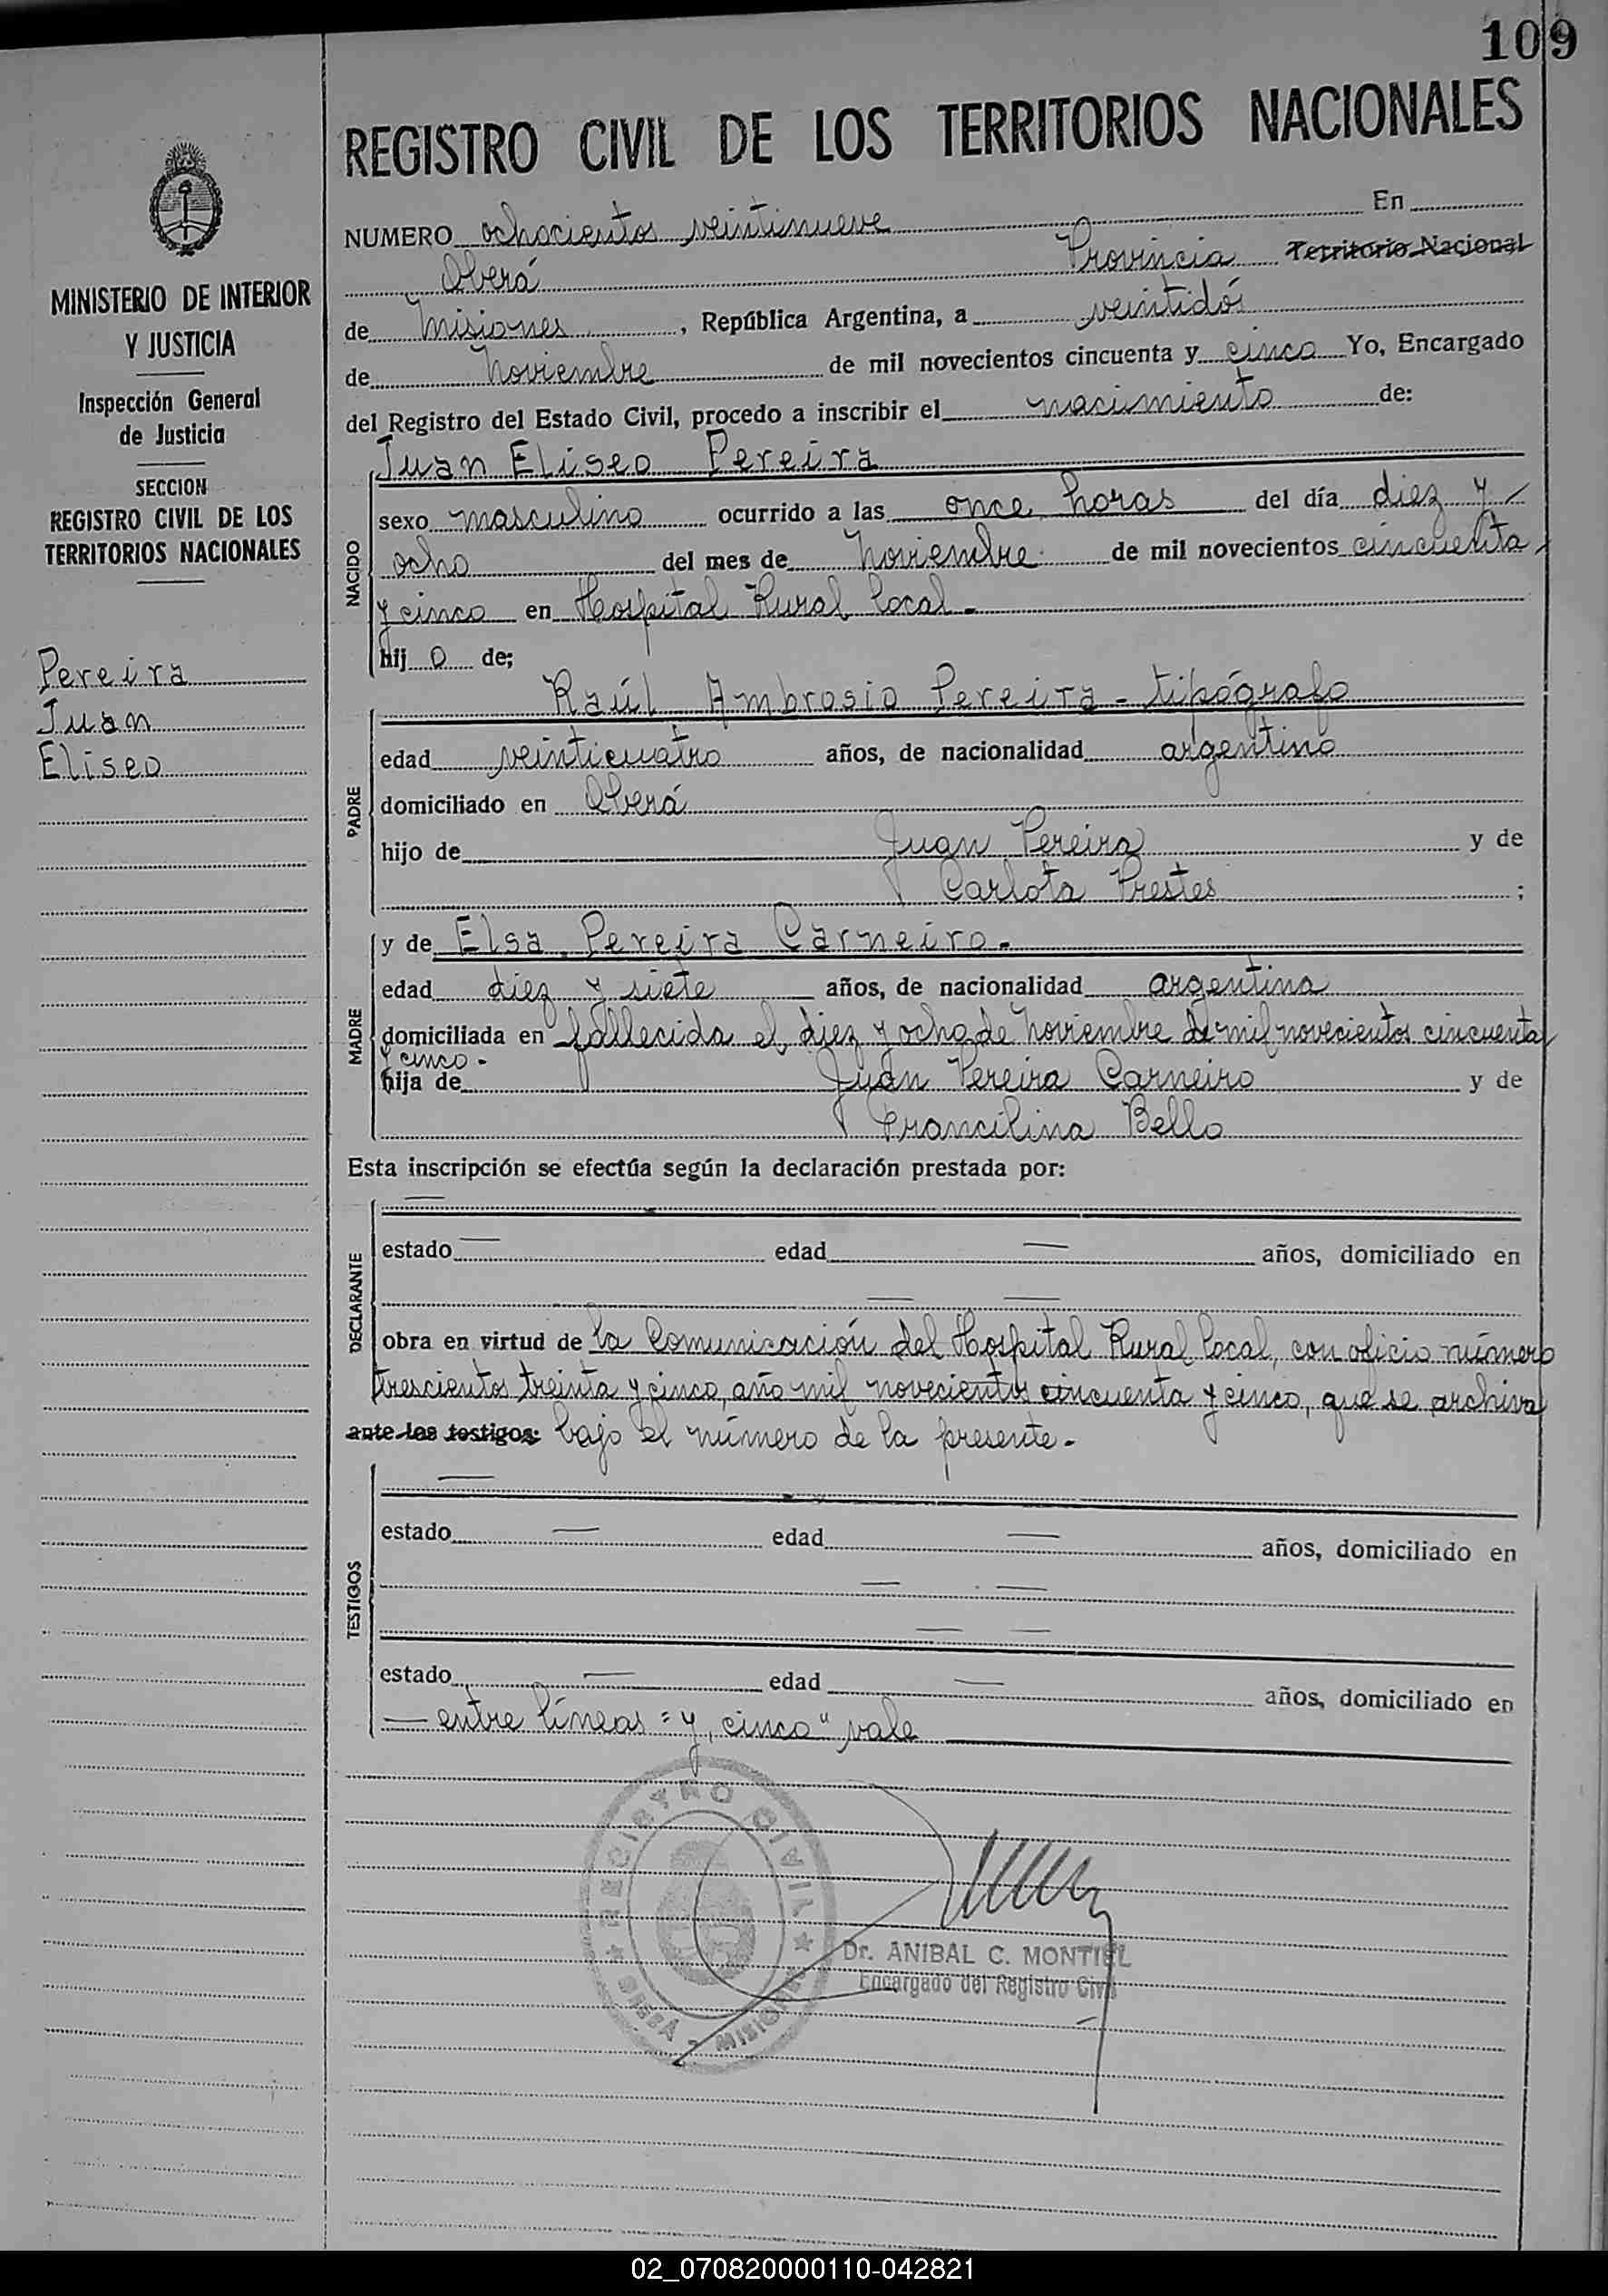 109
REGISTRO CIVIL DE LOS TERRITORIOS NACIONALES
MINISTERIO DE INTERIOR
Y JUSTICIA
Inspección General
de Justicia
SECCION
REGISTRO CIVIL DE LOS
TERRITORIOS NACIONALES
Pereira
Juan
Eliseo
NUMERO ochocientos veintinueve En
Oberá Provincia Territorio Nacional
de Misiones, República Argentina, a veintidós
de Noviembre de mil novecientos cincuenta y cinco Yo, Encargado
del Registro del Estado Civil, procedo a inscribir el nacimiento de:
Juan Eliseo Pereira
NACIDO
sexo masculino ocurrido a las once horas del día diez y
ocho del mes de Noviembre de mil novecientos cincuenta
y cinco en Hospital Rural Local.-
hijo de;
Raúl Ambrosio Pereira - tipógrafo
PADRE
edad veinticuatro años, de nacionalidad argentino
domiciliado en Oberá
hijo de Juan Pereira y de
Carlota Prestes ;
MADRE
y de Elsa Pereira Carneiro.-
edad diez y siete años, de nacionalidad argentina
domiciliada en fallecida el diez y ocho de Noviembre de mil novecientos cincuenta
y cinco -
hija de Juan Pereira Carneiro y de
Francilina Bello
Esta inscripción se efectúa según la declaración prestada por:
DECLARANTE
estado — edad — años, domiciliado en
obra en virtud de la Comunicación del Hospital Rural Local, con oficio número
trescientos treinta y cinco, año mil novecientos cincuenta y cinco, que se archiva
ante los testigos: bajo el número de la presente.-
TESTIGOS
estado — edad — años, domiciliado en
estado — edad — años, domiciliado en
— entre líneas = y cinco" vale
REGISTRO CIVIL
OBERÁ - MISIONES
Dr. ANIBAL C. MONTIEL
Encargado del Registro Civil
02_070820000110-042821